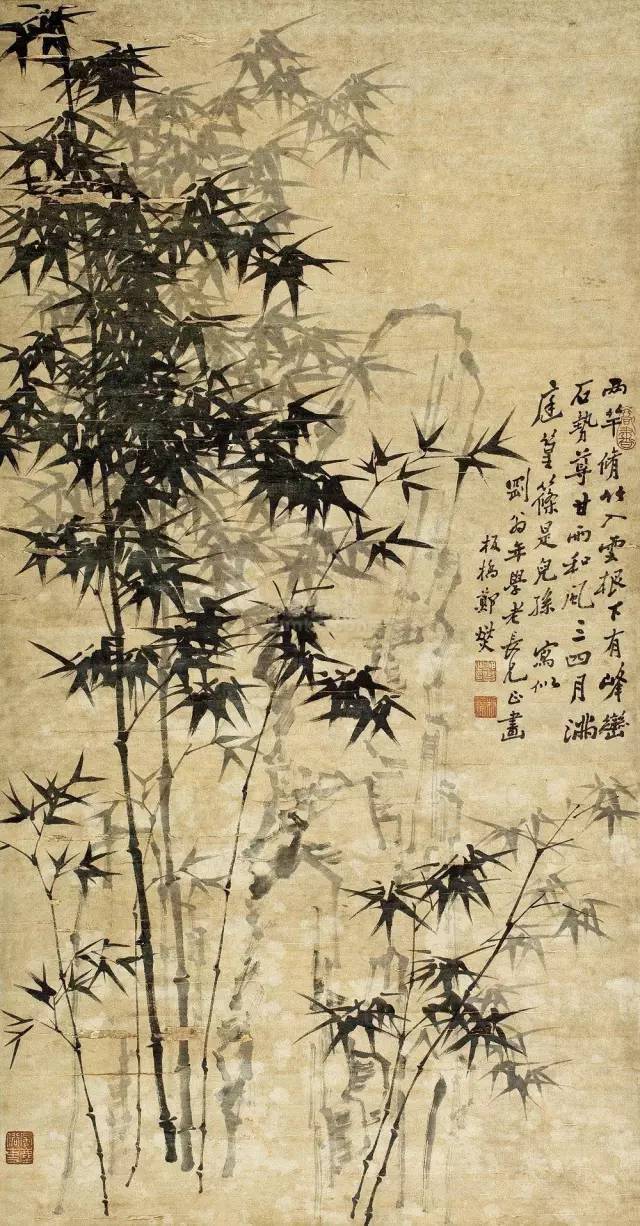 两竿脩竹入雲根下有峰巒
石勢尊甘雨和風三四月滿
庭篁篠是兒孫 寫似
劉翁年學老長兄正畫
板橋鄭燮